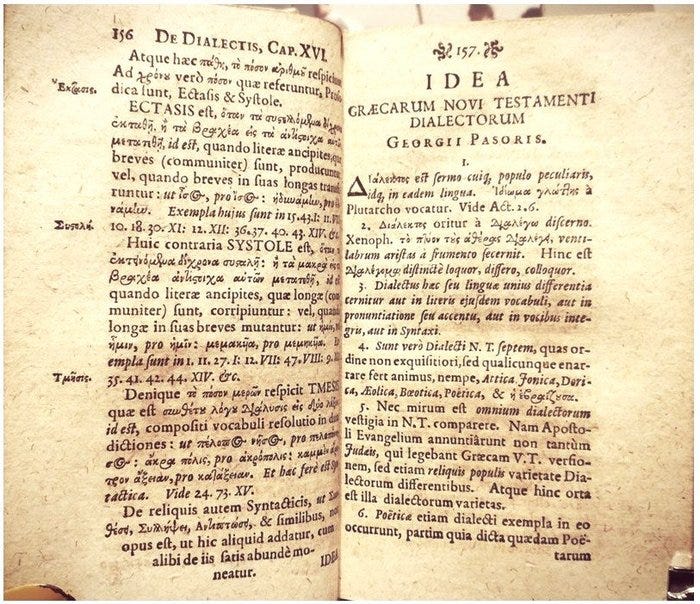 156 DE DIALECTIS, CAP. XVI.
Atque hæc πάθη, τὸ πόσον ἀριθμοῦ respiciunt
Ad χρόνον verò πόσον quæ referuntur,
dica sunt, Ectasis & Systole.
Ἔκτασις.
ECTASIS est, ὅταν τὰ συστελλόμϑμα δίχρονα
ἐκταθῇ. ἢ τὰ βραχέα εἰς τὰ ἀντίστοιχα αὐτῶν
μετατιθῇ, id est, quando literæ ancipites, quæ
breves (communiter) sunt, producuntur
vel, quando breves in suas longas
runtur: ut
Exempla hujus sunt in 15. 43. I: 11.
Συστολή.
10. 18. 30. XI: 12. XII: 36. 37. 40. 43. XIV. &c.
Huic contraria SYSTOLE est, ὅταν
δίχρονα συσταλῇ: ἢ τὰ μακρὰ εἰς
βραχέα ἀντίστοιχα αὐτῶν μετατιθῇ, id est
quando literæ ancipites, quæ longæ (com-
muniter) sunt, corripiuntur: vel, quando
longæ in suas breves mutantur: ut
ἧμιν, pro ἡμῖν: μεμακῆα, pro μεμηκῆα.
empla sunt in 1. 11. 27. I: 12. VII: 47. VIII: 9.
Τμῆσις.
35. 41. 42. 44. XIV. &c.
Denique τὸ πόσον μερῶν respicit TMESIS
quæ est συνθέτου λόγου διάλυσις εἰς δύο
id est, compositi vocabuli resolutio in duas
dictiones: ut
ἄκρα πόλις, pro ἀκρόπολις:
pro κατάξειαν. Et hæc ferè est Syn-
tactica. Vide 24. 73. XV.
De reliquis autem Syntacticis, ut
Συλλήψει, Ἀντιπτώσει, & similibus, non
opus est, ut hic aliquid addatur, cum
alibi de iis satis abundè mo-
neatur.
IDEA
157.
IDEA
GRÆCARUM NOVI TESTAMENTI
DIALECTORUM
GEORGII PASORIS.
I.
Διάλεκτος est sermo cuiq; populo peculiaris,
idq; in eadem lingua. Ἰδίωμα γλώττης à
Plutarcho vocatur. Vide Act. 2. 6.
2. Διάλεκτος oritur à διαλέγω discerno.
Xenoph. τὸ πτύον τὰς ἀθέρας διαλέγει, venti-
labrum aristas à frumento secernit. Hinc est
διαλέγομαι distinctè loquor, differo, colloquor.
3. Dialectus hæc seu linguæ unius differentia
cernitur aut in literis ejusdem vocabuli, aut in
pronuntiatione seu accentu, aut in vocibus inte-
gris, aut in Syntaxi.
4. Sunt verò Dialecti N. T. septem, quas or-
dine non exquisitiori, sed qualicunque enar-
rare fert animus, nempe, Attica, Jonica, Dori-
ca, Æolica, Bœotica, Poëtica, & ἡ ἑβραΐζουσα.
5. Nec mirum est omnium dialectorum
vestigia in N. T. comparere. Nam Aposto-
li Evangelium annuntiârunt non tantùm
Judæis, qui legebant Græcam V. T. versio-
nem, sed etiam reliquis populis varietate Dia-
lectorum differentibus. Atque hinc orta
est illa dialectorum varietas.
6. Poëticæ etiam dialecti exempla in eo
occurrunt, partim quia dicta quædam Poë-
tarum